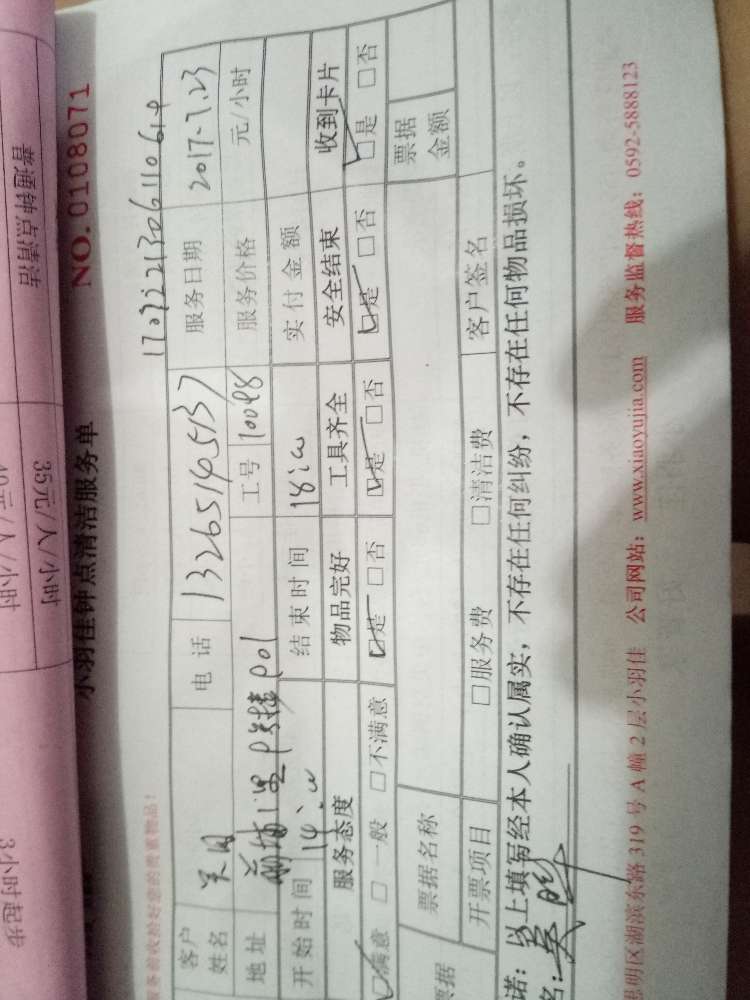 普通钟点清洁
35元/人/小时
40元/人/小时
3小时起步
小羽佳钟点清洁服务单
NO.0108071
1707221306110614
客户姓名
电话
13265145137
服务日期
2017.7.23
地址
P01
工号
10098
服务价格
元/小时
开始时间
结束时间
实付金额
服务态度
物品完好
工具齐全
安全结束
收到卡片
满意 □一般 □不满意
是 □否
是 □否
是 □否
是 □否
票据名称
票据金额
开票项目
□服务费 □清洁费
客户签名
诺：以上填写经本人确认属实，不存在任何纠纷，不存在任何物品损坏。
名：
思明区湖滨东路319号A幢2层小羽佳 公司网站：www.xiaoyujia.com 服务监督热线：0592-5888123